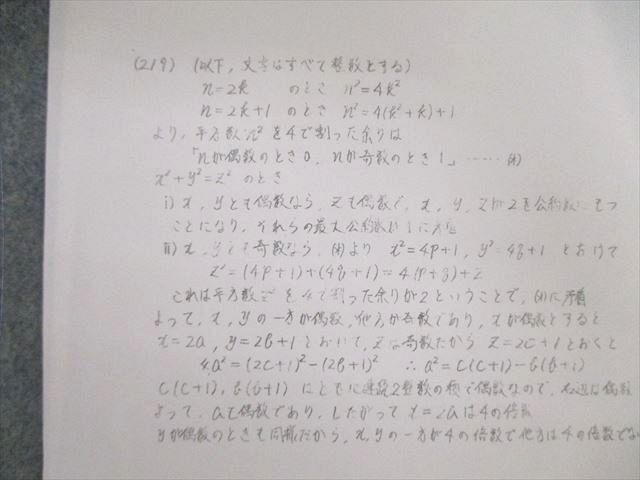 (219) (以下，文字はすべて整数とする)
n=2k のとき n²=4k²
n=2k+1 のとき n²=4(k²+k)+1
より，平方数 n² を4で割った余りは
「nが偶数のとき0，nが奇数のとき1」……(*)
x²+y²=z² のとき
i) x，yとも偶数なら，zも偶数で，x，y，zが2を公約数にもつ
ことになり，それらの最大公約数が1に矛盾
ii) x，yとも奇数なら，(*)より x²=4p+1，y²=4q+1 とおけて
z²=(4p+1)+(4q+1)=4(p+q)+2
これは平方数 z² を4で割った余りが2ということで，(*)に矛盾
よって，x，yの一方が偶数，他方が奇数であり，xが偶数とすると
x=2a，y=2b+1とおいて，zは奇数だから z=2c+1とおくと
4a²=(2c+1)²-(2b+1)² ∴ a²=c(c+1)-b(b+1)
c(c+1)，b(b+1) はともに連続2整数の積で偶数なので，右辺は偶数
よって，aも偶数であり，したがって x=2aは4の倍数
yが偶数のときも同様だから，x，yの一方が4の倍数で他方は4の倍数でな